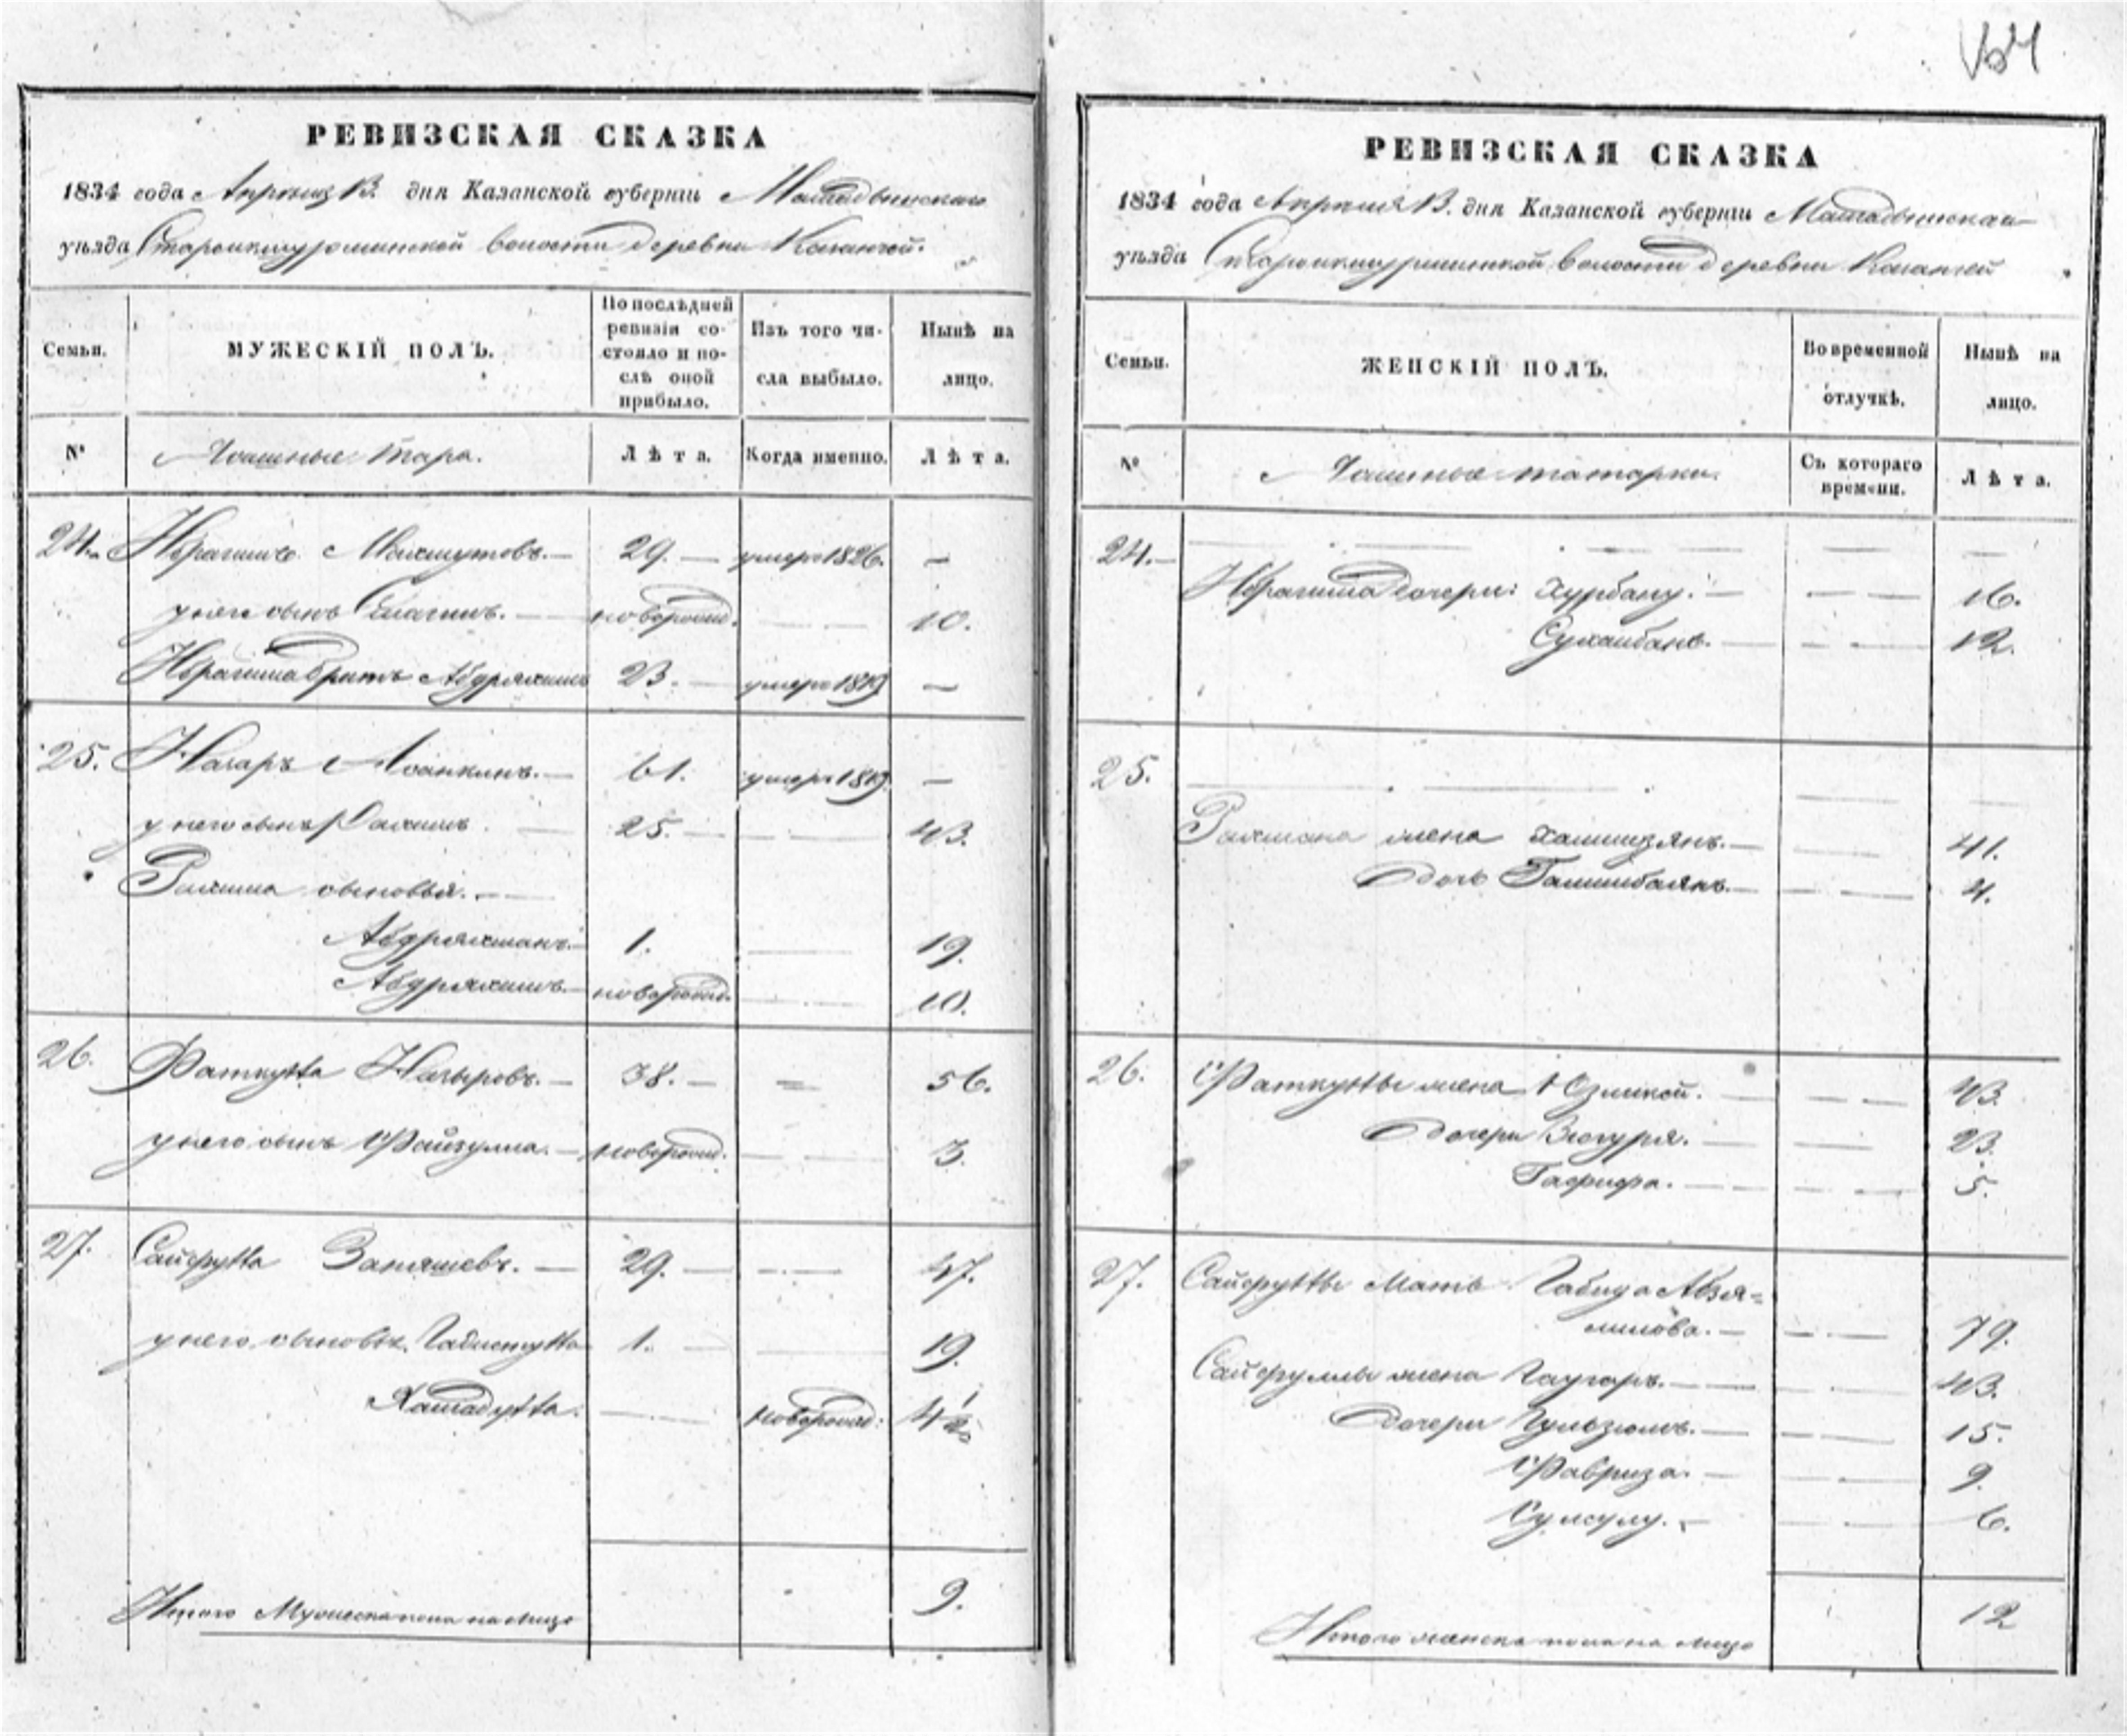 164
РЕВИЗСКАЯ СКАЗКА
1834 года Апреля 13. дня Казанской губернiи Мамадышскаго
уѣзда волости деревни
Семьи.
МУЖЕСКIЙ ПОЛЪ.
По послѣдней ревизiи состояло и послѣ оной прибыло.
Изъ того числа выбыло.
Нынѣ на лицо.
№
Ясашные татара.
Лѣта.
Когда именно.
Лѣта.
24. Ибрагимъ Махмутовъ. 29. умеръ 1826. —
у него сынъ новорожд. 10.
Ибрагима братъ Абдряхимъ 23. умеръ 1819 —
25. 61. умеръ 1819. —
у него сынъ Рахимъ. 25. 43.
Рахима сыновья.
Абдряхманъ. 1. 19.
Абдряхимъ. новорожд. 10.
26. Фаткулла 38. 56.
у него сынъ Файзулла. новорожд. 3.
27. Сайфулла 29. 47.
у него сыновья. 1. 19.
новорожд: 4 1/2
Итого Мужеска пола на лицо 9.
РЕВИЗСКАЯ СКАЗКА
1834 года Апреля 13. дня Казанской губернiи Мамадышскаго
уѣзда волости деревни
Семьи.
ЖЕНСКIЙ ПОЛЪ.
Во временной отлучкѣ.
Нынѣ на лицо.
№
Ясашные татарки.
Съ котораго времени.
Лѣта.
24.
Ибрагима дочери: Хурбану. 16.
12.
25.
жена 41.
дочь 4.
26. Фаткуллы жена 43.
дочери 23.
Гафифа. 5.
27. Сайфуллы Мать Габида Абзя-
лилова. 79.
Сайфуллы жена Гаугаръ. 43.
дочери 15.
Фавриза. 9.
6.
Итого женска пола на лицо 12